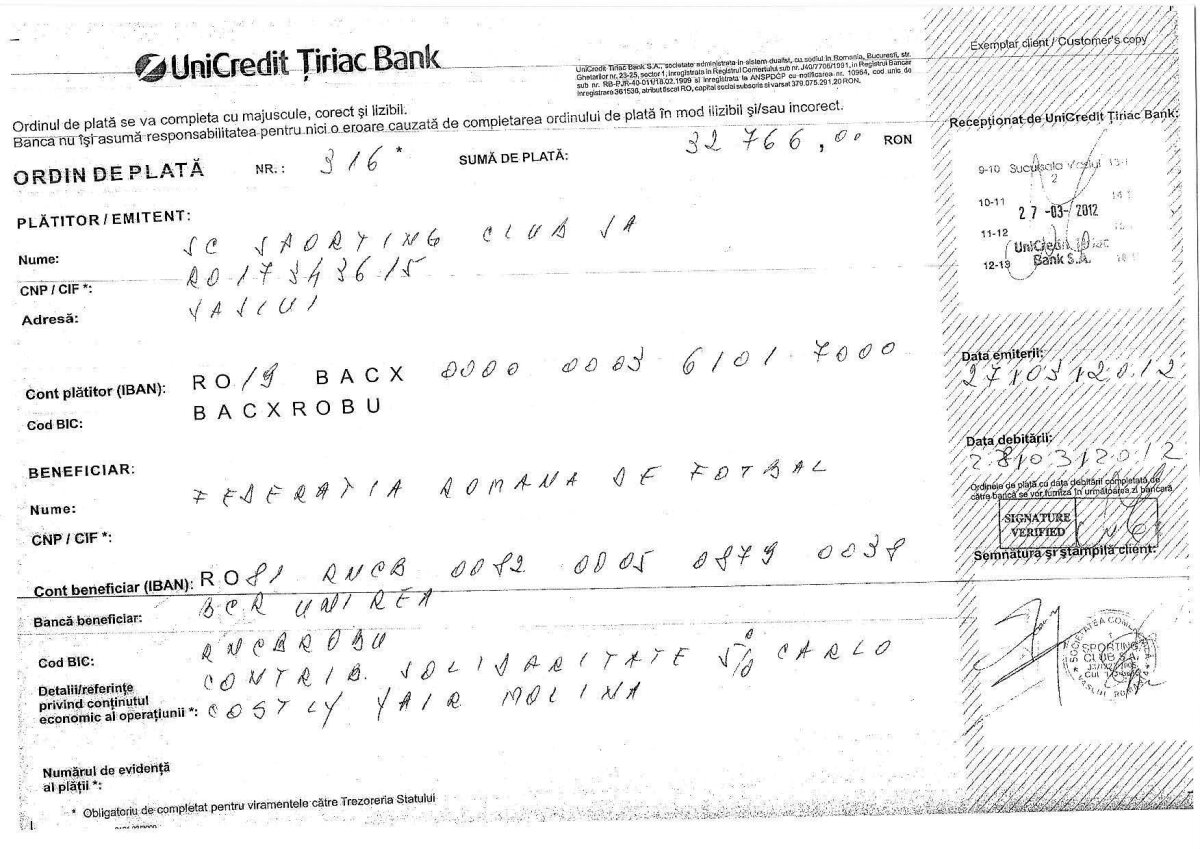 UniCredit Țiriac Bank
UniCredit Tiriac Bank S.A., societate administrata in sistem dualist, cu sediul in Romania, Bucuresti, str.
Ghetarilor nr. 23-25, sector 1, inregistrata in Registrul Comertului sub nr. J40/7706/1991, in Registrul Bancar
sub nr. RB-PJR-40-011/18.02.1999 si inregistrata la ANSPDCP cu notificarea nr. 10964, cod unic de
inregistrare 361536, atribut fiscal RO, capital social subscris si varsat 379.075.291.20 RON.
Exemplar client / Customer's copy
Ordinul de plată se va completa cu majuscule, corect şi lizibil.
Banca nu îşi asumă responsabilitatea pentru nici o eroare cauzată de completarea ordinului de plată în mod ilizibil şi/sau incorect.
Recepţionat de UniCredit Ţiriac Bank:
ORDIN DE PLATĂ NR.: 316 * SUMĂ DE PLATĂ: 32 766,00 RON
9-10 Sucursala Vaslui 13-1
2
10-11 14-1
27-03-2012
11-12
UniCredit Tiriac
12-13 Bank S.A.
PLĂTITOR / EMITENT:
Nume: SC SPORTING CLUB SA
CNP / CIF *: RO 17343615
Adresă: VASLUI
Cont plătitor (IBAN): RO 19 BACX 0000 0003 6101 7000
Cod BIC: BACXROBU
Data emiterii:
27/03/2012
Data debitării:
28/03/2012
Ordinele de plată cu data debitării completată de
către bancă se vor furniza în următoarea zi bancară
SIGNATURE
VERIFIED
Semnătura şi ştampila client:
BENEFICIAR:
Nume: FEDERATIA ROMANA DE FOTBAL
CNP / CIF *:
Cont beneficiar (IBAN): RO81 RNCB 0082 0005 0879 0038
Bancă beneficiar: BCR UNIREA
Cod BIC: RNCBROBU
Detalii/referinţe
privind conţinutul
economic al operaţiunii *:
CONTRIB. SOLIDARITATE 5% CARLO
COSTLY YAIR MOLINA
SOCIETATEA COMERCIALA
SPORTING
CLUB S.A.
VASLUI ROMANIA
Numărul de evidenţă
al plăţii *:
* Obligatoriu de completat pentru viramentele către Trezoreria Statului